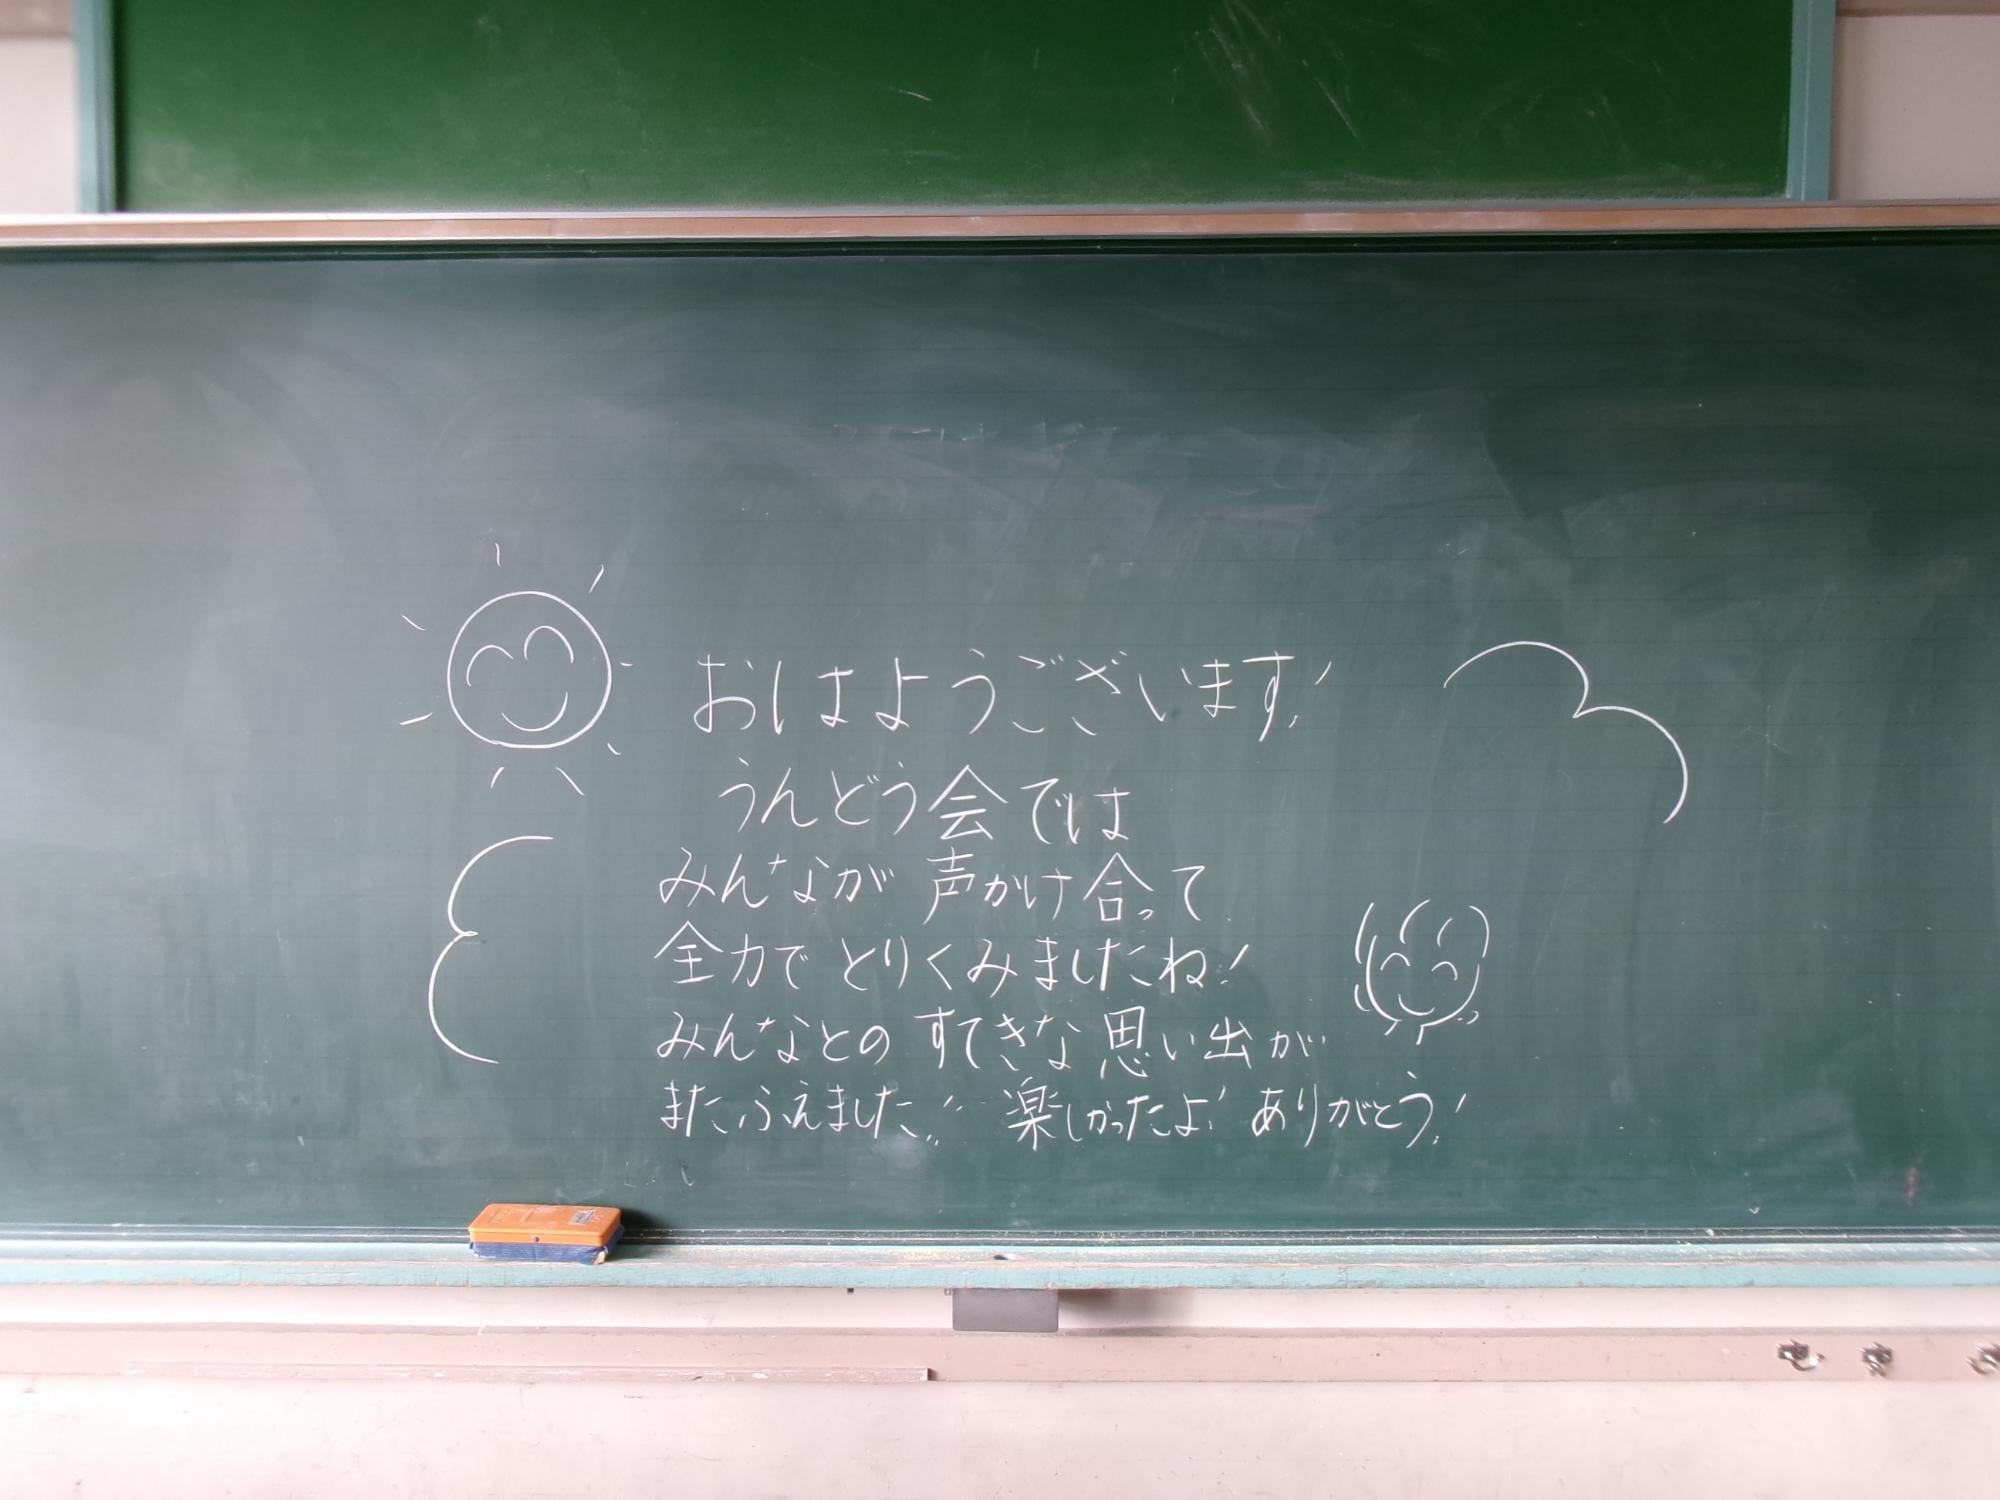 おはようございます!
うんどう会では
みんなが 声かけ合って
全力で とりくみましたね!
みんなとの すてきな 思い出が
また ふえました!! 楽しかったよ! ありがとう!